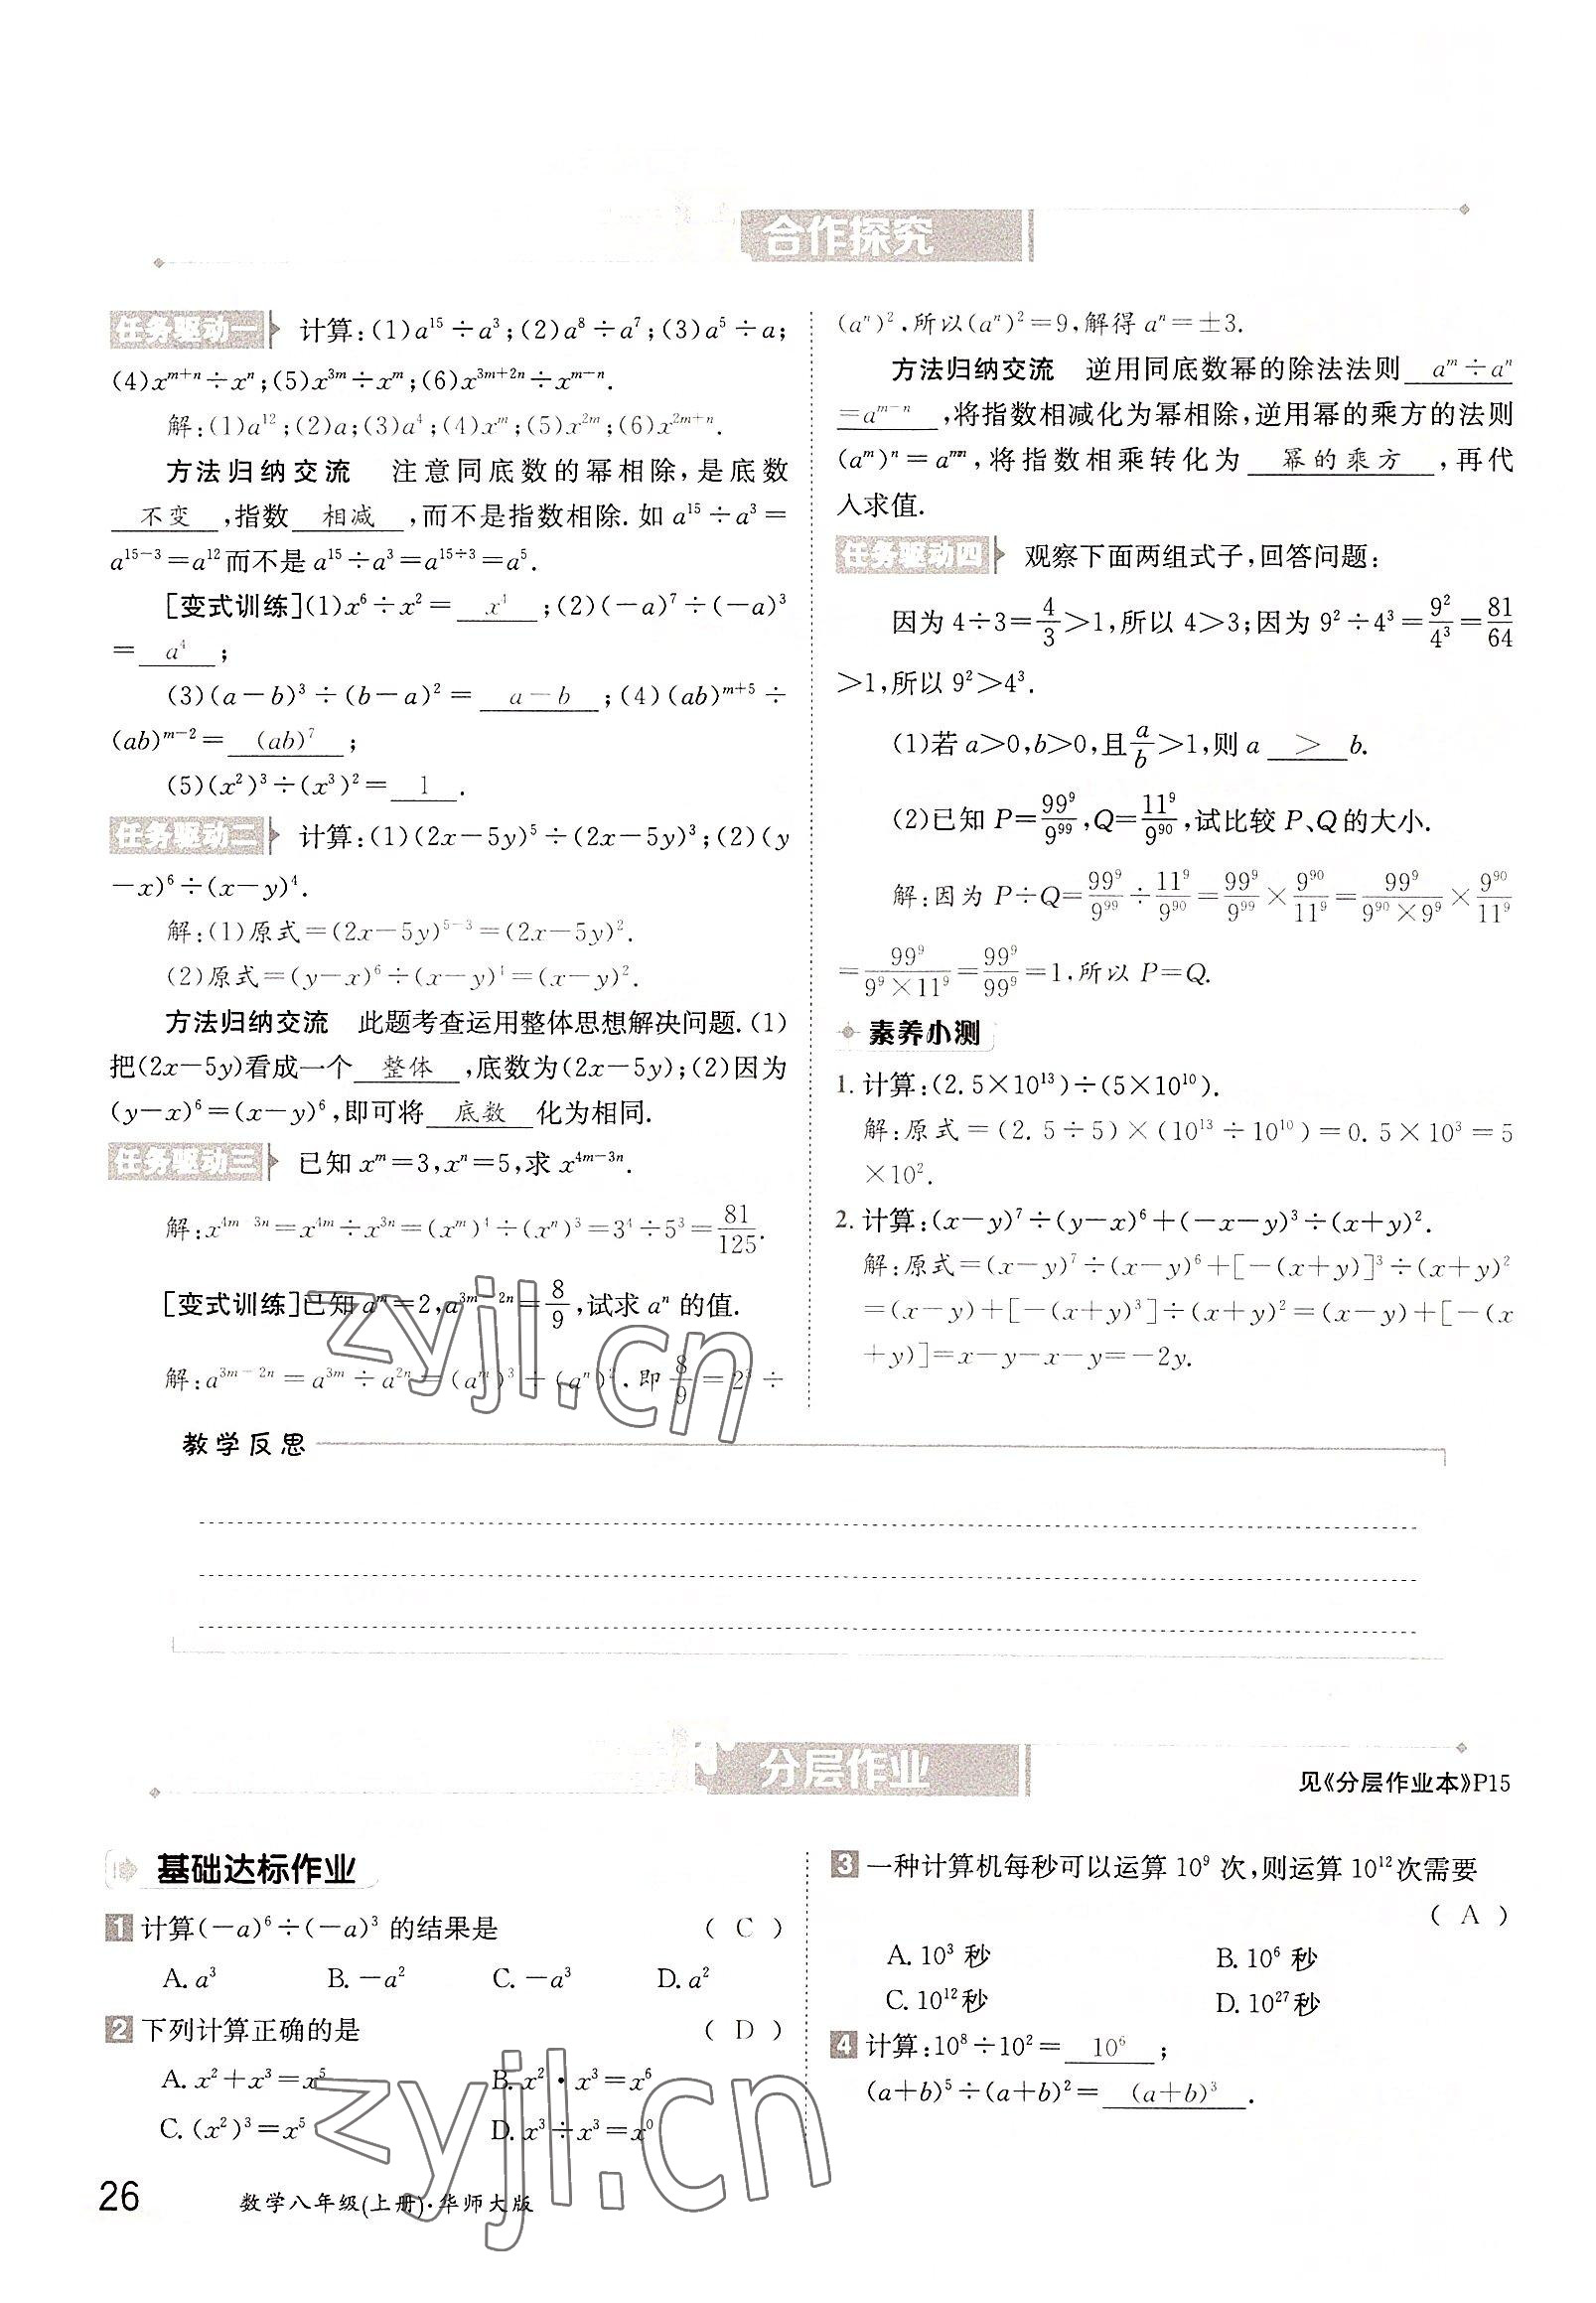 合作探究
任务驱动一 计算:(1)a¹⁵÷a³;(2)a⁸÷a⁷;(3)a⁵÷a;
(4)xᵐ⁺ⁿ÷xⁿ;(5)x³ᵐ÷xᵐ;(6)x³ᵐ⁺²ⁿ÷xᵐ⁻ⁿ.
解:(1)a¹²;(2)a;(3)a⁴;(4)xᵐ;(5)x²ᵐ;(6)x²ᵐ⁺ⁿ.
方法归纳交流 注意同底数的幂相除,是底数
不变,指数 相减,而不是指数相除.如 a¹⁵÷a³=
a¹⁵⁻³=a¹²而不是 a¹⁵÷a³=a¹⁵÷³=a⁵.
[变式训练](1)x⁶÷x²= x⁴;(2)(-a)⁷÷(-a)³
= a⁴;
(3)(a-b)³÷(b-a)²= a-b;(4)(ab)ᵐ⁺⁵÷
(ab)ᵐ⁻²= (ab)⁷;
(5)(x²)³÷(x³)²= 1.
任务驱动二 计算:(1)(2x-5y)⁵÷(2x-5y)³;(2)(y
-x)⁶÷(x-y)⁴.
解:(1)原式=(2x-5y)⁵⁻³=(2x-5y)².
(2)原式=(y-x)⁶÷(x-y)⁴=(x-y)².
方法归纳交流 此题考查运用整体思想解决问题.(1)
把(2x-5y)看成一个 整体,底数为(2x-5y);(2)因为
(y-x)⁶=(x-y)⁶,即可将 底数 化为相同.
任务驱动三 已知 xᵐ=3,xⁿ=5,求 x⁴ᵐ⁻³ⁿ.
解:x⁴ᵐ⁻³ⁿ=x⁴ᵐ÷x³ⁿ=(xᵐ)⁴÷(xⁿ)³=3⁴÷5³=81/125.
[变式训练]已知 aᵐ=2,a³ᵐ⁻²ⁿ=8/9,试求 aⁿ 的值.
解:a³ᵐ⁻²ⁿ=a³ᵐ÷a²ⁿ=(aᵐ)³÷(aⁿ)².即 8/9=2³÷
(aⁿ)².所以(aⁿ)²=9,解得 aⁿ=±3.
方法归纳交流 逆用同底数幂的除法法则 aᵐ÷aⁿ
=aᵐ⁻ⁿ,将指数相减化为幂相除,逆用幂的乘方的法则
(aᵐ)ⁿ=aᵐⁿ,将指数相乘转化为 幂的乘方,再代
入求值.
任务驱动四 观察下面两组式子,回答问题:
因为 4÷3=4/3>1,所以 4>3;因为 9²÷4³=9²/4³=81/64
>1,所以 9²>4³.
(1)若 a>0,b>0,且a/b>1,则 a > b.
(2)已知 P=99⁹/9⁹⁹,Q=11⁹/9⁹⁰,试比较 P、Q的大小.
解:因为 P÷Q=99⁹/9⁹⁹÷11⁹/9⁹⁰=99⁹/9⁹⁹×9⁹⁰/11⁹=99⁹/(9⁹⁰×9⁹)×9⁹⁰/11⁹
=99⁹/(9⁹×11⁹)=99⁹/99⁹=1,所以 P=Q.
素养小测
1.计算:(2.5×10¹³)÷(5×10¹⁰).
解:原式=(2.5÷5)×(10¹³÷10¹⁰)=0.5×10³=5
×10².
2.计算:(x-y)⁷÷(y-x)⁶+(-x-y)³÷(x+y)².
解:原式=(x-y)⁷÷(x-y)⁶+[-(x+y)]³÷(x+y)²
=(x-y)+[-(x+y)³]÷(x+y)²=(x-y)+[-(x
+y)]=x-y-x-y=-2y.
教学反思
分层作业
见《分层作业本》P15
基础达标作业
1 计算(-a)⁶÷(-a)³ 的结果是 ( C )
A.a³ B.-a² C.-a³ D.a²
2 下列计算正确的是 ( D )
A.x²+x³=x⁵ B.x²·x³=x⁶
C.(x²)³=x⁵ D.x³÷x³=x⁰
3 一种计算机每秒可以运算 10⁹ 次,则运算 10¹²次需要
( A )
A.10³ 秒 B.10⁶ 秒
C.10¹²秒 D.10²⁷秒
4 计算:10⁸÷10²= 10⁶;
(a+b)⁵÷(a+b)²= (a+b)³.
26 数学八年级(上册)·华师大版
zyjl.cn
zyjl.cn